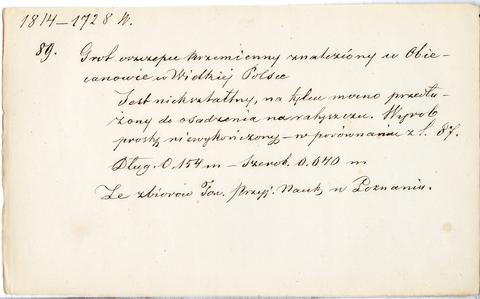 1814–1728 N.
89. Grot oszczepu krzemienny znaleziony w Obie-
canowie w Wielkiej Polsce
Jest niekształtny, na tylcu mocno przedłu-
żony do osadzenia na ratyszczu. Wyrób
prosty niewykończony – w porównaniu z l. 87.
Dług. 0,154 m – Szerok. 0.040 m
Ze zbiorów Tow. Przyj. Nauk w Poznaniu.